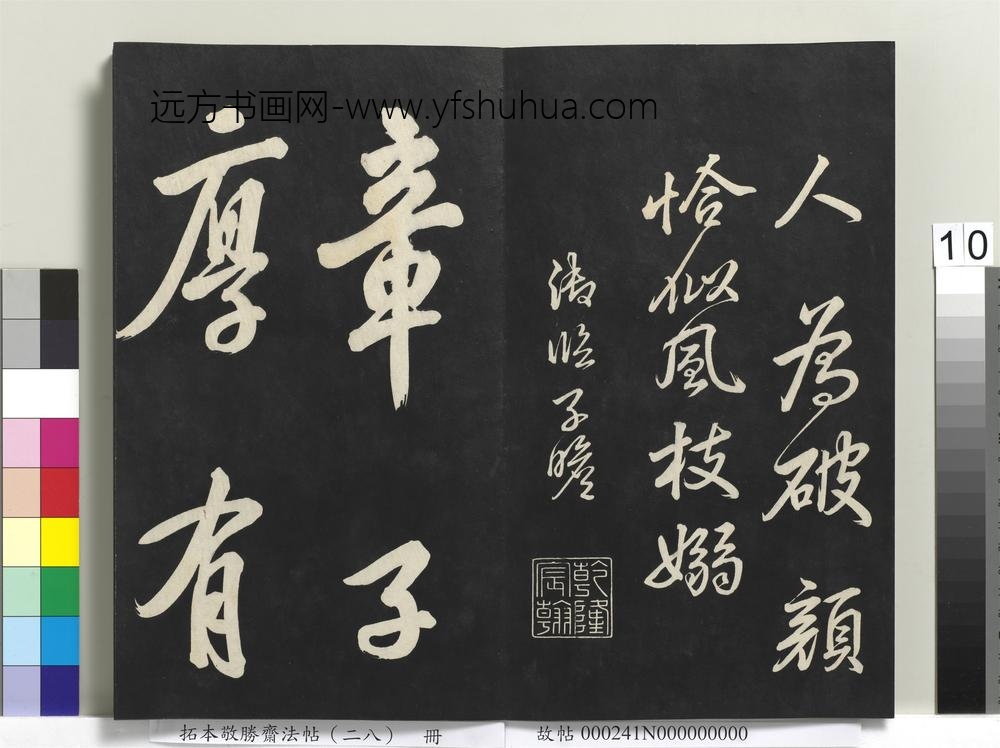 远方书画网-www.yfshuhua.com
人为破顏
恰似風枝嫋
御臨子瞻
乾隆宸翰
章子
厚有
10
拓本敬勝齋法帖（二八） 冊
故帖 000241N000000000